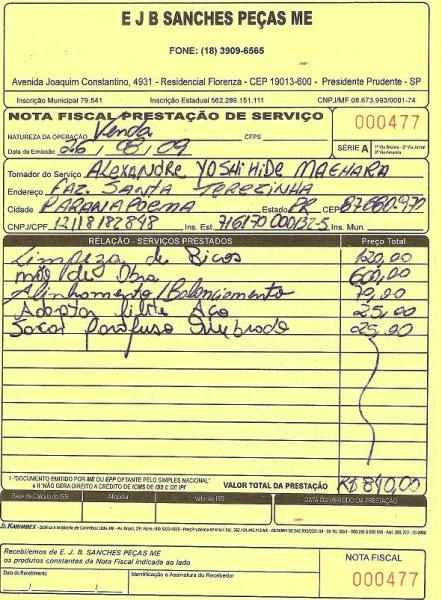 E J B SANCHES PEÇAS ME
FONE: (18) 3909-6565
Avenida Joaquim Constantino, 4931 - Residencial Florenza - CEP 19013-600 - Presidente Prudente - SP
Inscrição Municipal 79.541 Inscrição Estadual 562.289.151.111 CNPJ/MF 08.673.993/0001-74
NOTA FISCAL PRESTAÇÃO DE SERVIÇO
000477
NATUREZA DA OPERAÇÃO Venda CFPS
Data da Emissão 26/08/09
SÉRIE A
Tomador do Serviço ALEXANDRE YOSHIHIDE MAEHARA
Endereço FAZ. SANTA TEREZINHA
Cidade PARANAPOEMA Estado PR CEP 87660.970
CNPJ/CPF 12118182898 Ins. Est. Ins. Mun.
RELAÇÃO - SERVIÇOS PRESTADOS Preço Total
Limpeza de Bicos 120,00
mão de Obra 600,00
Alinhamento/Balanciamento 70,00
Adaptar filtro Aço 25,00
Sacar Parafuso Quebrado 25,00
I -"DOCUMENTO EMITIDO POR ME OU EPP OPTANTE PELO SIMPLES NACIONAL"
e II "NÃO GERA DIREITO A CRÉDITO DE ICMS DE ISS E DE IPI"
VALOR TOTAL DA PRESTAÇÃO R$ 840,00
Base de Cálculo do ISS Alíquota Valor do ISS DATA OU PERÍODO DA PRESTAÇÃO
KARIMBEX
Recebiemos de E. J. B. SANCHES PEÇAS ME
os produtos constantes da Nota Fiscal indicada ao lado
NOTA FISCAL
Data do Recebimento Identificação e Assinatura do Recebedor
000477